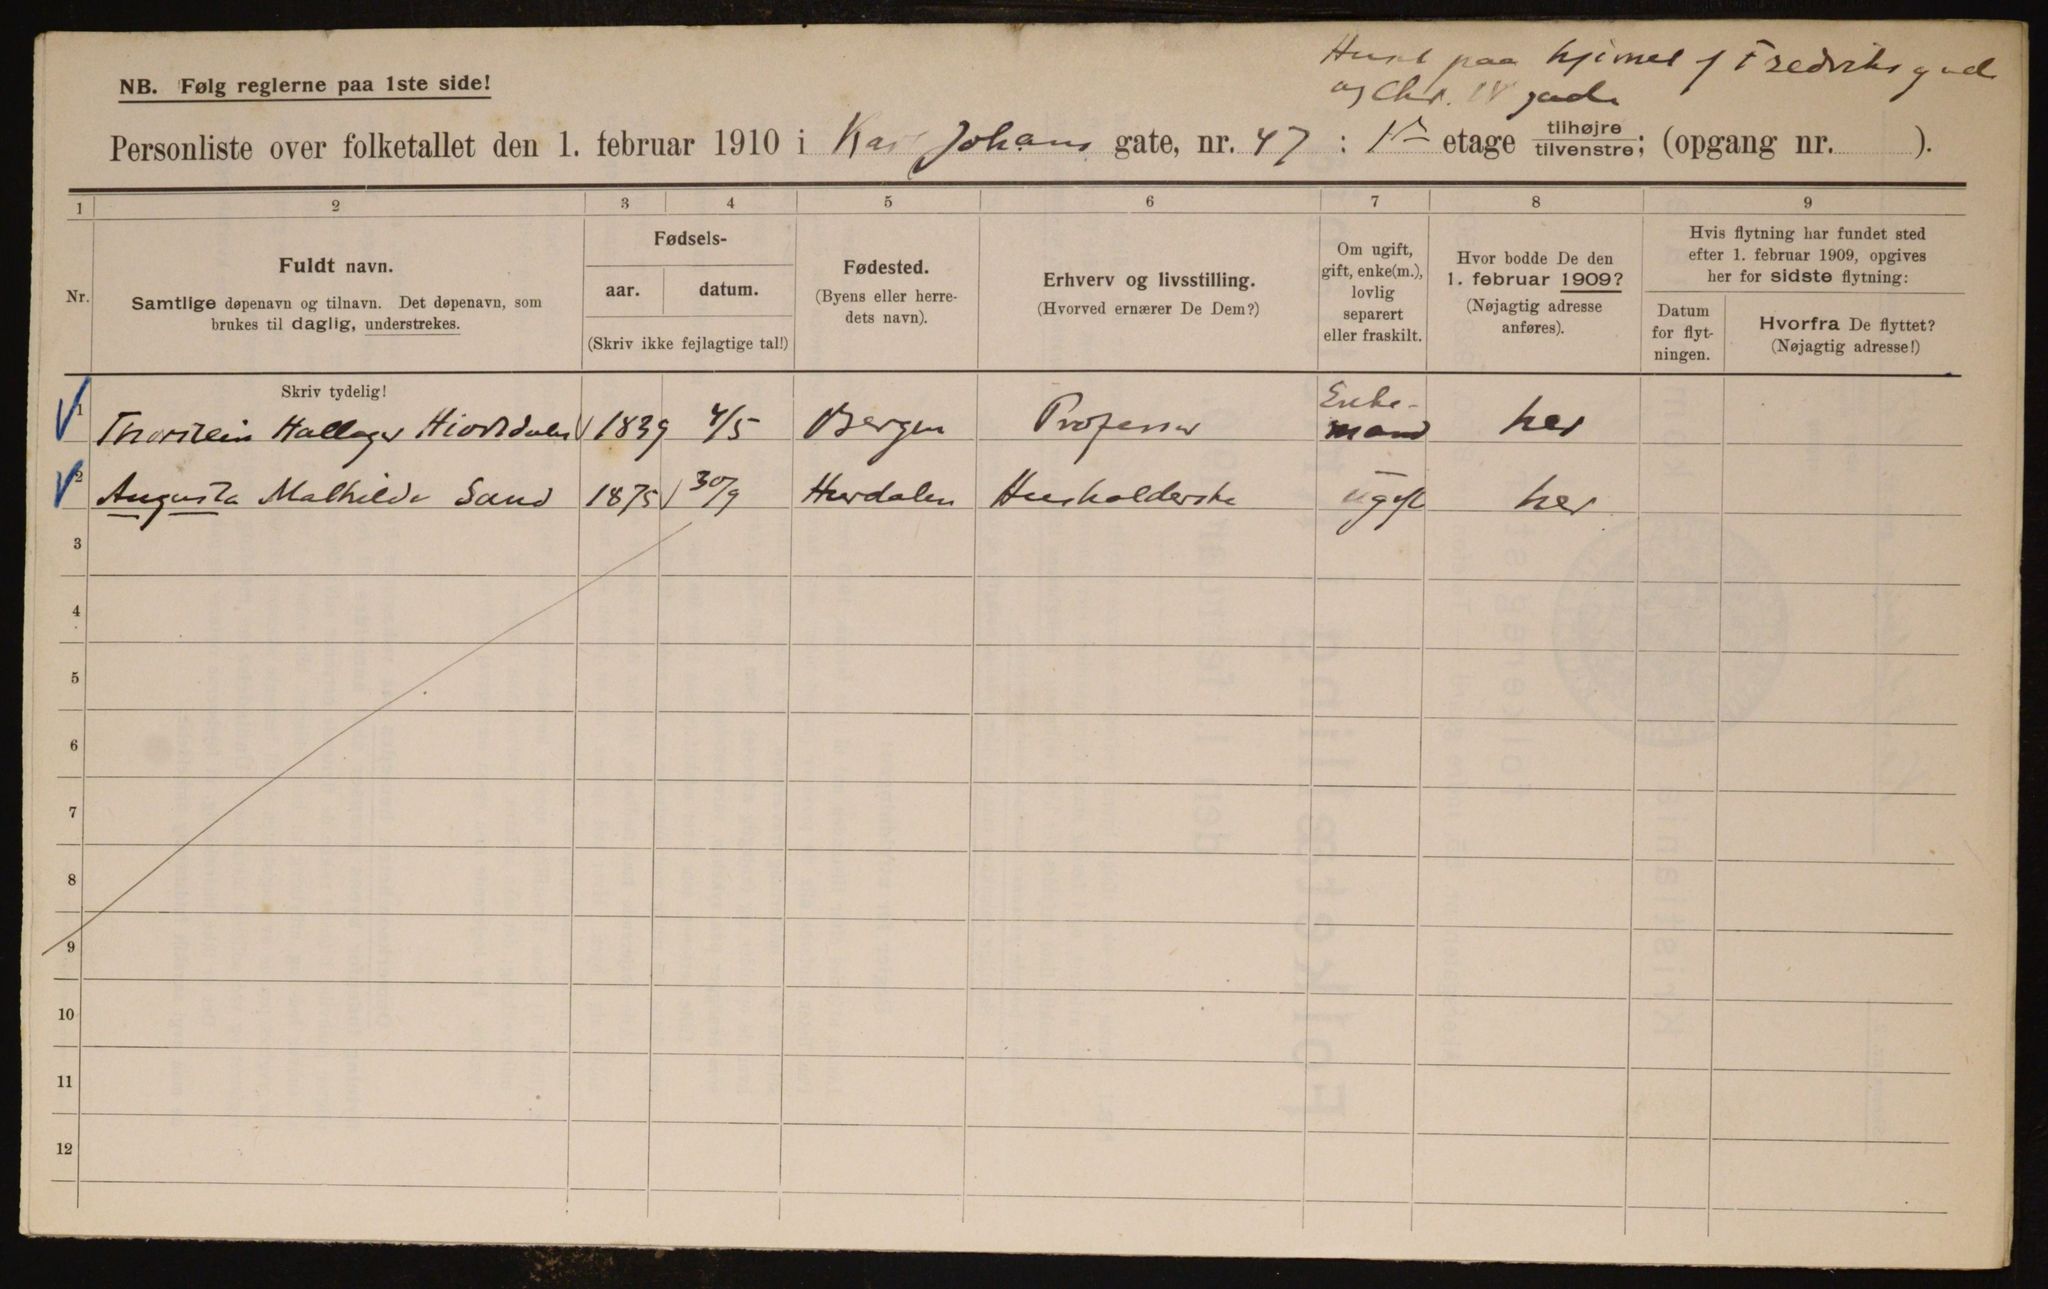 Huset paa hjørnet af Fredriks gade
og Chr. IV gade
NB. Følg reglerne paa 1ste side!
Personliste over folketallet den 1. februar 1910 i Karl Johans gate, nr. 47 : 1ste etage tilhøjre tilvenstre; (opgang nr. ).
1 2 3 4 5 6 7 8 9
Nr.
Fuldt navn.
Samtlige døpenavn og tilnavn. Det døpenavn, som
brukes til daglig, understrekes.
Fødsels-
aar. datum.
(Skriv ikke fejlagtige tal!)
Fødested.
(Byens eller herre-
dets navn).
Erhverv og livsstilling.
(Hvorved ernærer De Dem?)
Om ugift,
gift, enke(m.),
lovlig
separert
eller fraskilt.
Hvor bodde De den
1. februar 1909?
(Nøjagtig adresse
anføres).
Hvis flytning har fundet sted
efter 1. februar 1909, opgives
her for sidste flytning:
Datum
for flyt-
ningen.
Hvorfra De flyttet?
(Nøjagtig adresse!)
Skriv tydelig!
1 Thorstein Hallager Hiortdahl 1839 4/5 Bergen Professor Enke-
mand her
2 Augusta Mathilde Sand 1875 30/9 Hurdalen Husholderske ugift her
3
4
5
6
7
8
9
10
11
12